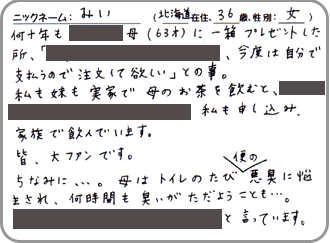 ニックネーム: みい (北海道在住、36歳、性別: 女)
何十年も 母(63才)に一箱プレゼントした
所、「 、今度は自分で
支払うので注文して欲しい」との事。
私も妹も実家で母のお茶を飲むと、
私も申し込み、
家族で飲んでいます。
皆、大ファンです。
便の
ちなみに、…。母はトイレのたび悪臭に悩
まされ、何時間も臭いがただようことも…。
と言っています。